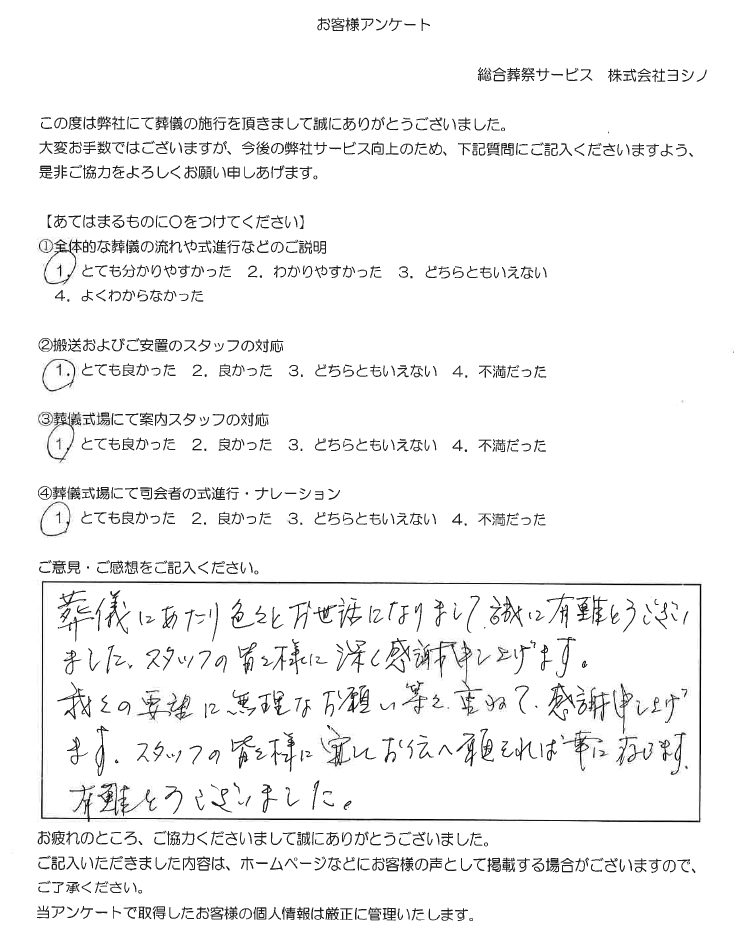 お客様アンケート
総合葬祭サービス　株式会社ヨシノ
この度は弊社にて葬儀の施行を頂きまして誠にありがとうございました。
大変お手数ではございますが、今後の弊社サービス向上のため、下記質問にご記入くださいますよう、
是非ご協力をよろしくお願い申しあげます。
【あてはまるものに〇をつけてください】
①全体的な葬儀の流れや式進行などのご説明
1．とても分かりやすかった　2．わかりやすかった　3．どちらともいえない
4．よくわからなかった
②搬送およびご安置のスタッフの対応
1．とても良かった　2．良かった　3．どちらともいえない　4．不満だった
③葬儀式場にて案内スタッフの対応
1．とても良かった　2．良かった　3．どちらともいえない　4．不満だった
④葬儀式場にて司会者の式進行・ナレーション
1．とても良かった　2．良かった　3．どちらともいえない　4．不満だった
ご意見・ご感想をご記入ください。
葬儀にあたり色々とお世話になりまして、誠に有難とうござい
ました、スタッフの皆々様に深く感謝申し上げます。
我々の要望に無理なお願い等を 感謝申し上げ
ます、スタッフの皆々様に宜しくお伝へ願えれば幸に存じます、
有難とうございました。
お疲れのところ、ご協力くださいまして誠にありがとうございました。
ご記入いただきました内容は、ホームページなどにお客様の声として掲載する場合がございますので、
ご了承ください。
当アンケートで取得したお客様の個人情報は厳正に管理いたします。